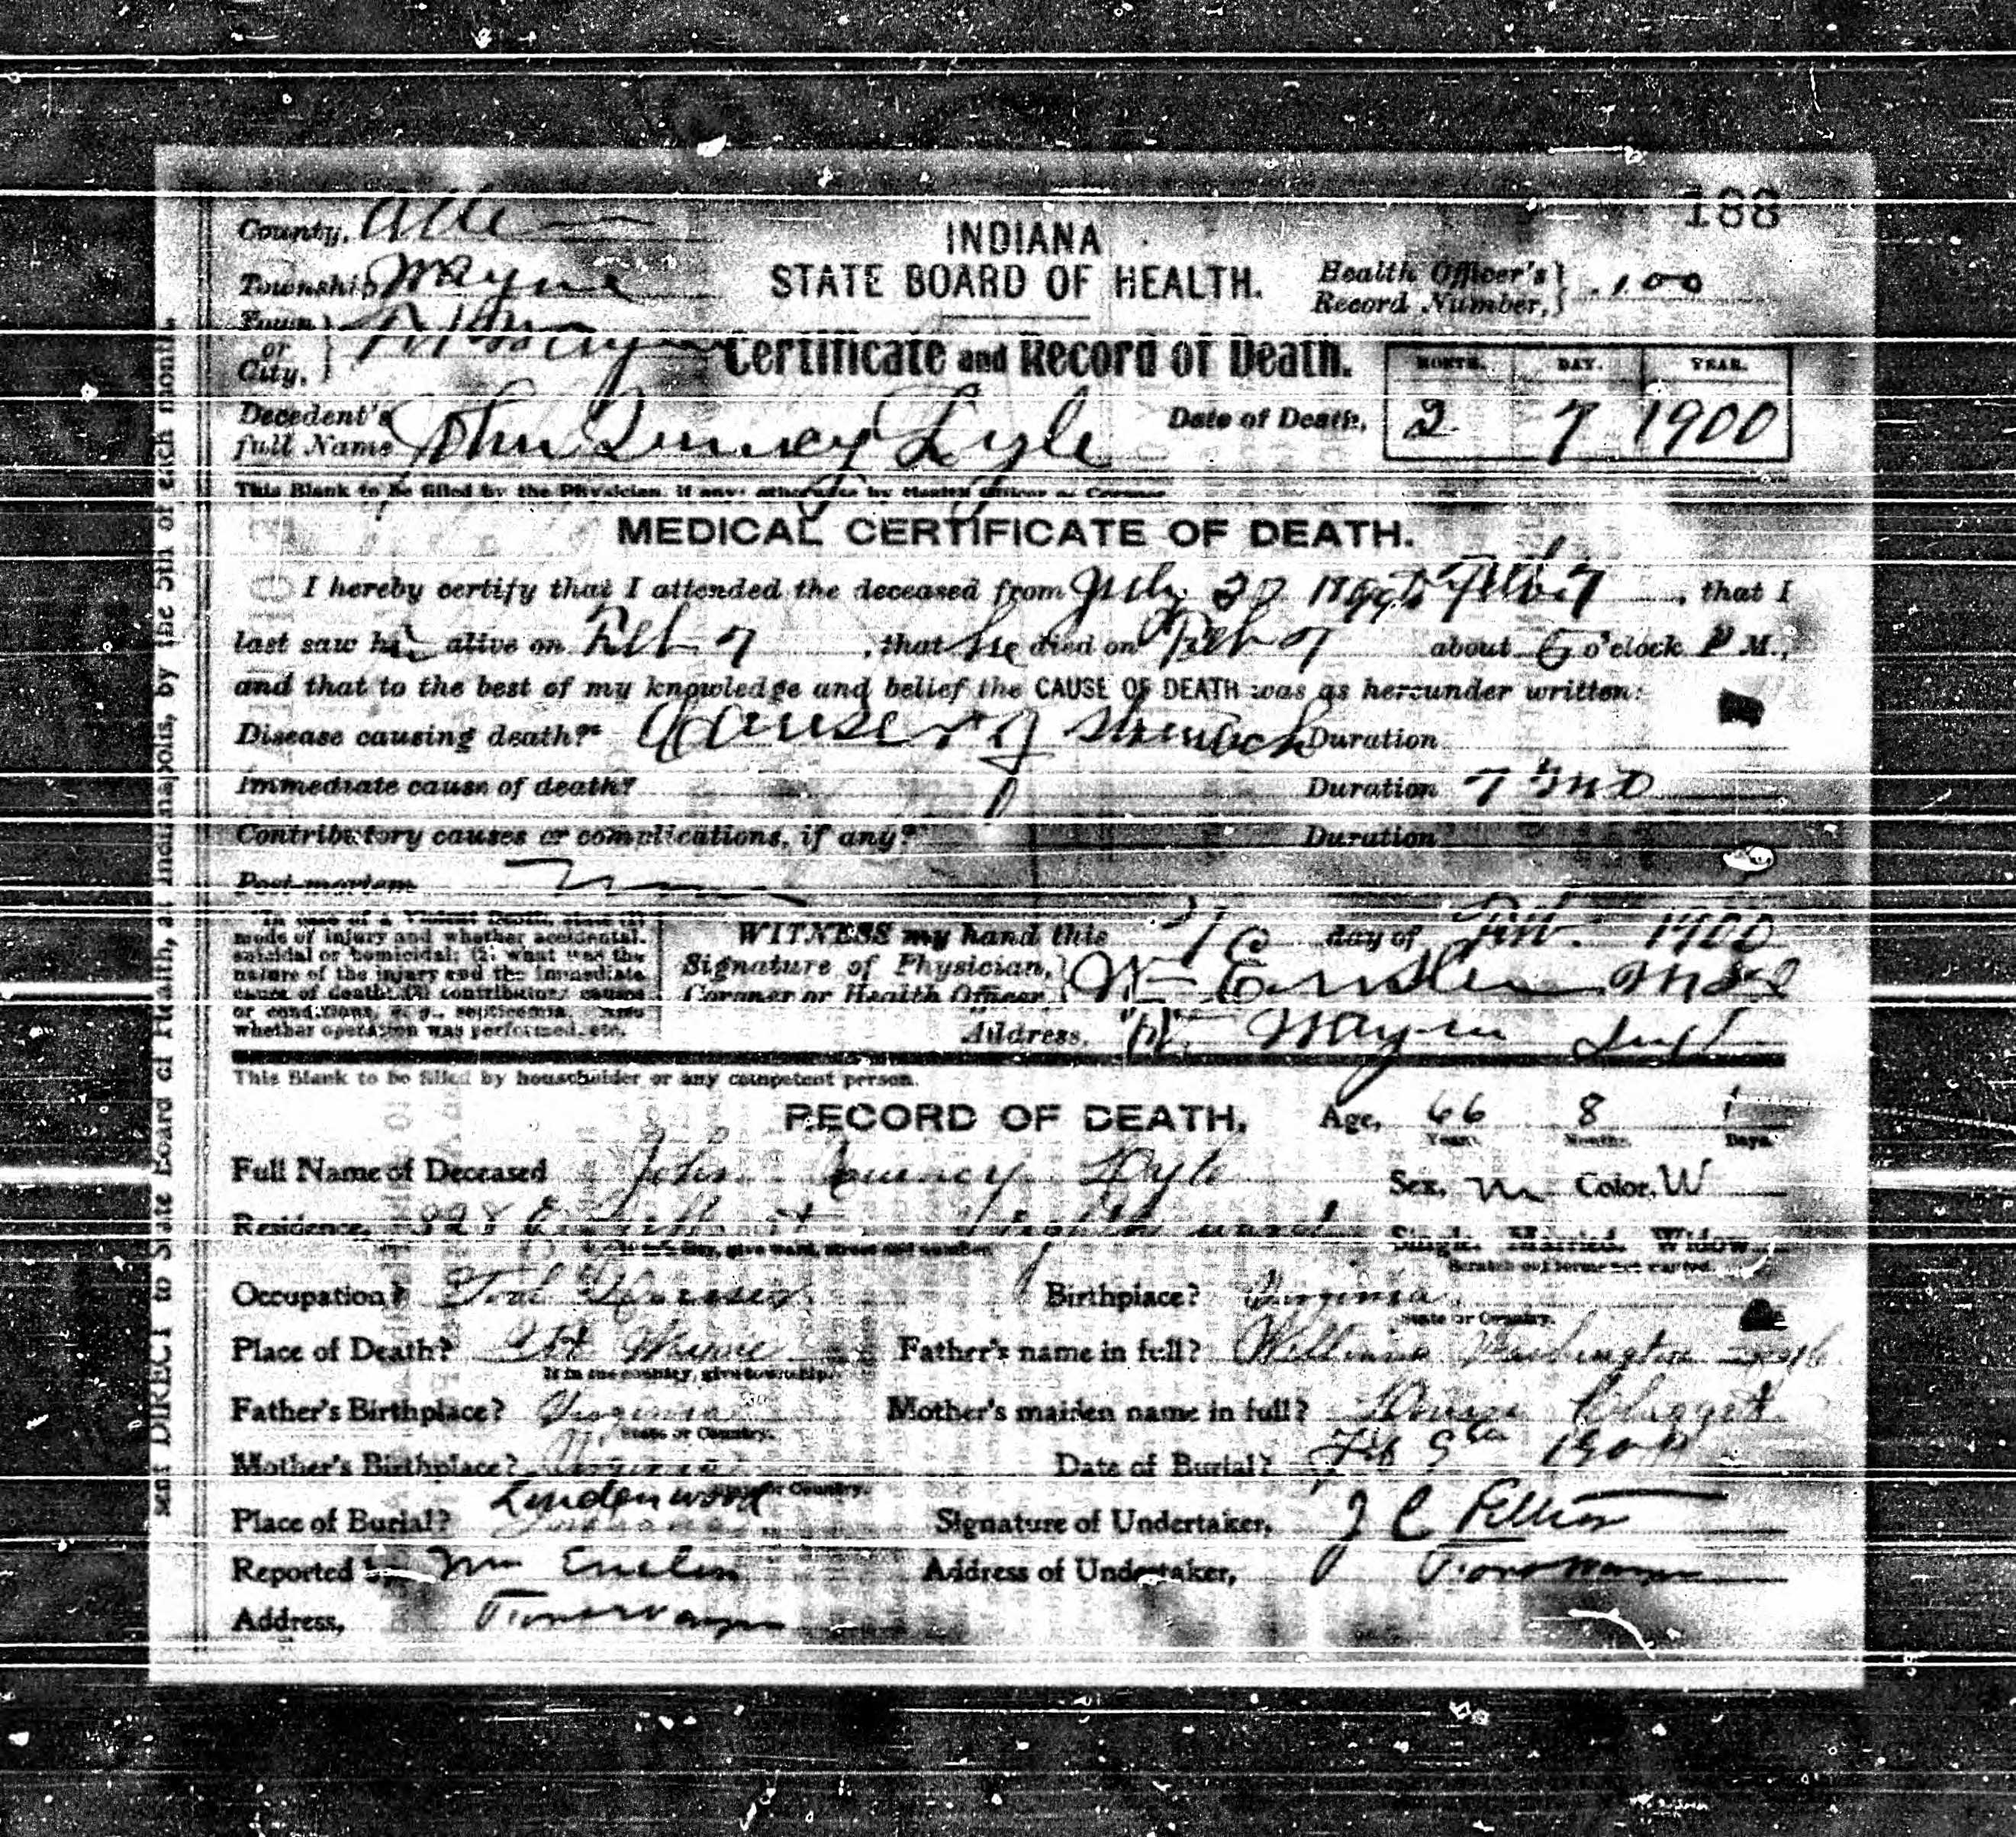 188
County, Allen
INDIANA
Township Wayne
STATE BOARD OF HEALTH.
Health Officer's
Record Number, 100
Town
or
City, Ft Wayne
Certificate and Record of Death.
MONTH. DAY. YEAR.
Decedent's
full Name John Quincy Lyle
Date of Death, 2 7 1900
This Blank to be filled by the Physician, if any; otherwise by Health Officer or Coroner
MEDICAL CERTIFICATE OF DEATH.
I hereby certify that I attended the deceased from July 27 to Feb 7, that I
last saw him alive on Feb 7, that he died on Feb 7 about 6 o'clock P M.,
and that to the best of my knowledge and belief the CAUSE OF DEATH was as hereunder written:
Disease causing death?* Cancer of Stomach Duration
Immediate cause of death? Duration 7 mo
Contributory causes or complications, if any? Duration
Post-mortem
*In case of a Violent Death, state (1)
mode of injury and whether accidental,
suicidal or homicidal; (2) what was the
nature of the injury and the immediate
cause of death; (3) contributory causes
or conditions, e. g., septicemia. Also
whether operation was performed, etc.
WITNESS my hand this day of Feb. 1900
Signature of Physician,
Coroner or Health Officer,
Address, Ft. Wayne Ind
This Blank to be filled by householder or any competent person.
RECORD OF DEATH. Age, 66 8 1
Years. Months. Days.
Full Name of Deceased John Quincy Lyle Sex, M Color, W
Residence, 328 E st Eighth ward Single. Married. Widow
If in city, give ward, street and number.
Scratch out terms not wanted.
Occupation? Birthplace? Virginia
State or Country.
Place of Death? Ft Wayne Father's name in full? William Washington Lyle
If in the country, give township.
Father's Birthplace? Virginia Mother's maiden name in full? Claggett
State or Country.
Mother's Birthplace? Virginia Date of Burial? Feb 9th 1900
or Country.
Place of Burial? Lindenwood Signature of Undertaker, J C Peltier
Reported by Address of Undertaker, Fort Wayne
Address, Fort Wayne
sent DIRECT to State Board of Health, at Indianapolis, by the 5th of each month.